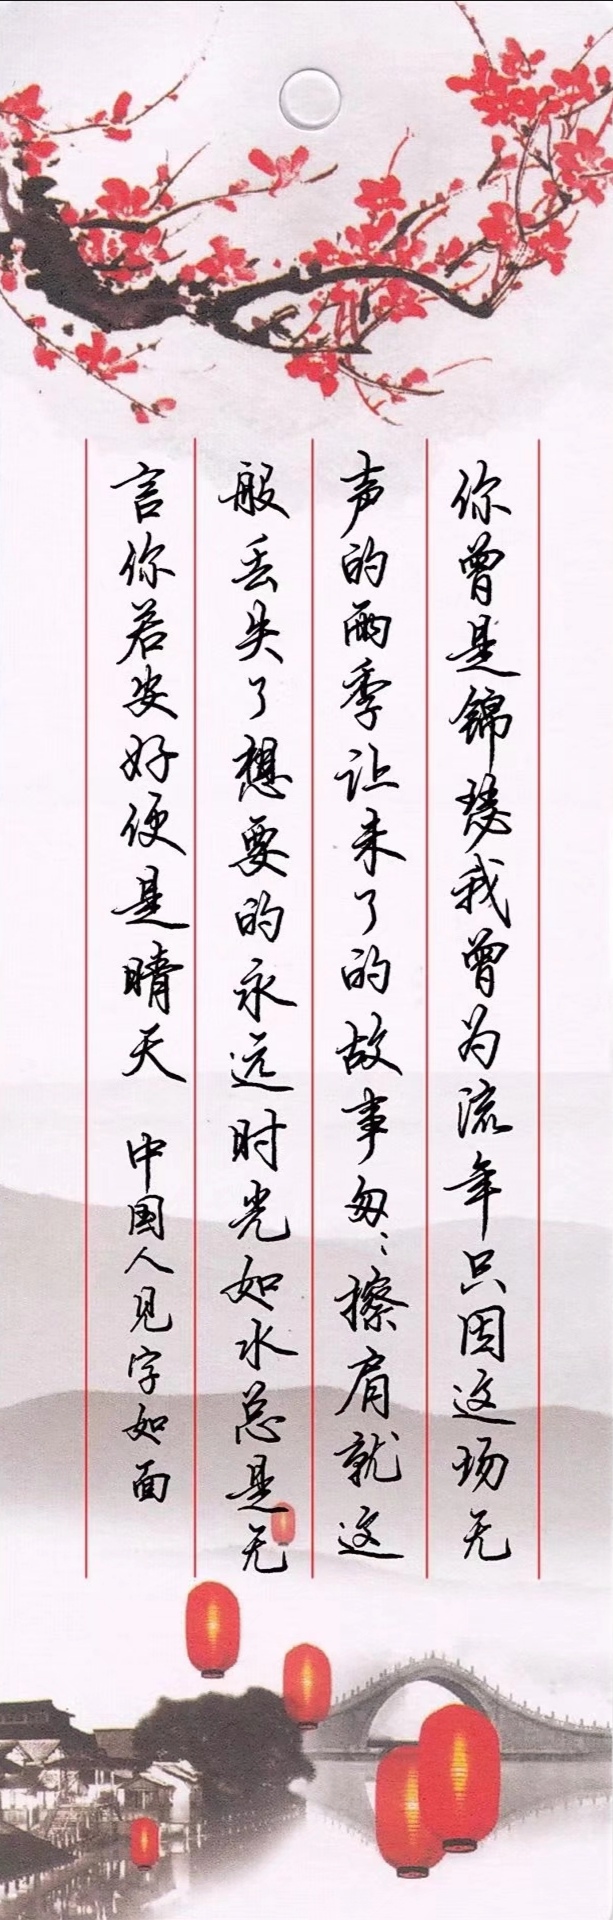 你曾是锦瑟我曾为流年只因这场无
声的雨季让未了的故事匆〻擦肩就这
般丢失了想要的永远时光如水总是无
言你若安好便是晴天 中国人见字如面